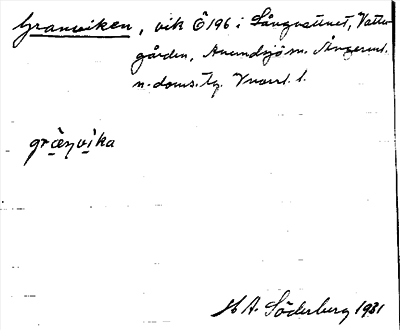 Granviken, vik Ö 196 i Långvattnet, Vatten-
gården, Anundsjö sn. Ångerml.
n. doms. tg. Vnorrl. l.
græ̀nvìka
H A. Söderberg 1931